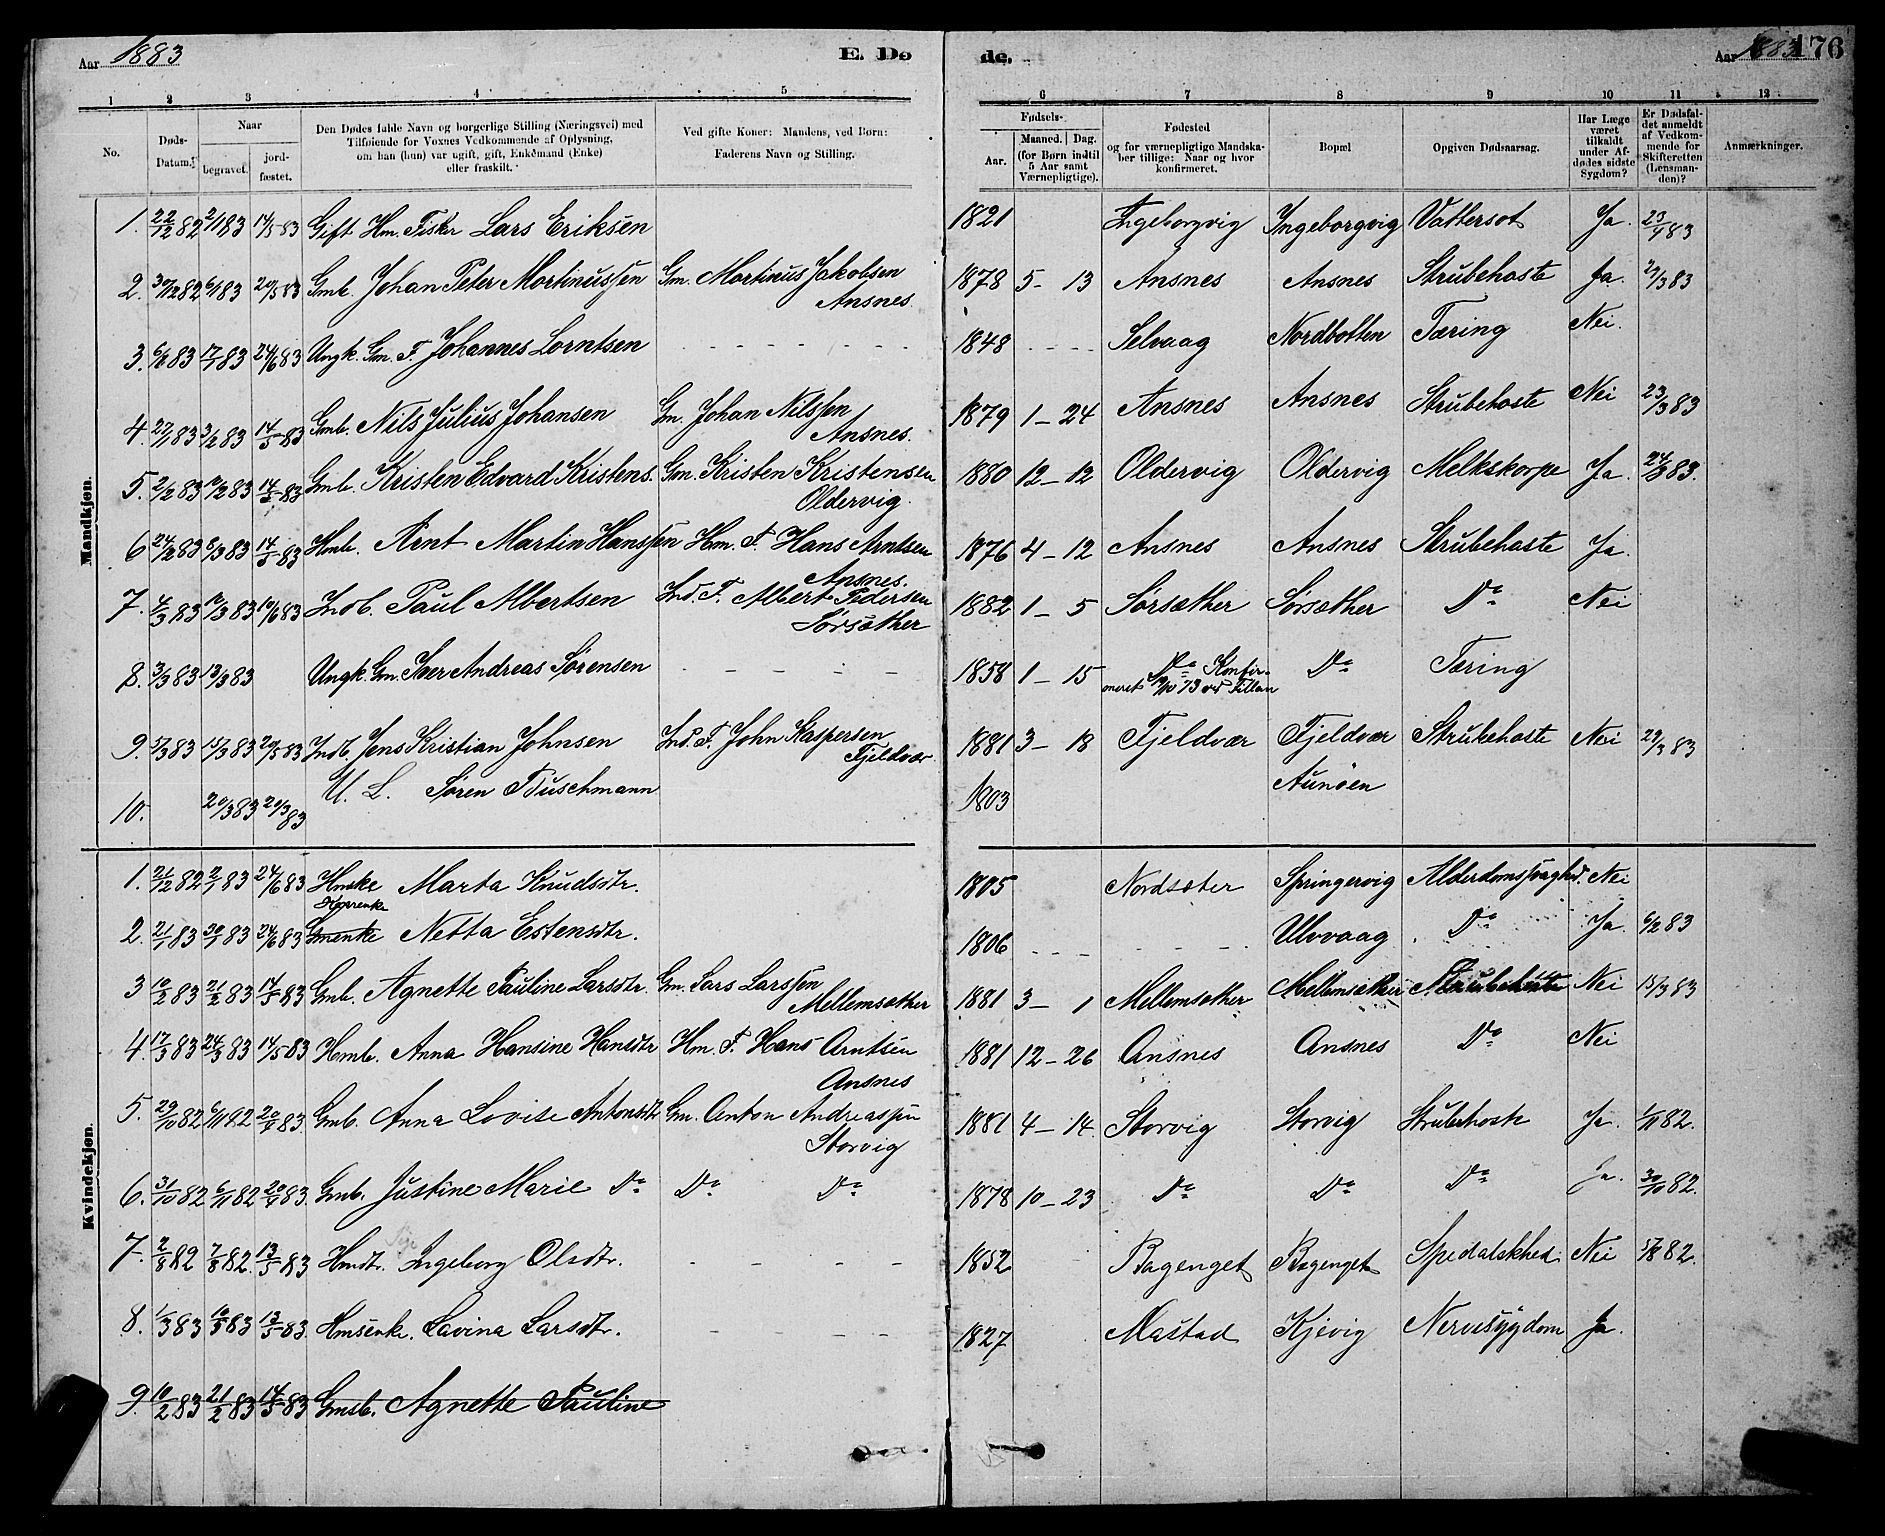 Aar 1883 E. Dø de. Aar 1883 176
1 2 3 4 5 6 7 8 9 10 11 12
No. Døds-Datum. Naar begravet. jord-fæstet. Den Dødes fulde Navn og borgerlige Stilling (Næringsvei) med Tilføiende for Voxnes Vedkommende af Oplysning, om han (hun) var ugift, gift, Enkemand (Enke) eller fraskilt. Ved gifte Koner: Mandens, ved Børn: Faderens Navn og Stilling. Fødsels- Aar. Maaned. Dag. (for Børn indtil 5 Aar samt Værnepligtige). Fødested og for værnepligtige Mandska-ber tillige: Naar og hvor konfirmeret. Bopæl Opgiven Dødsaarsag. Har Læge været tilkaldt under Af-dødes sidste Sygdom? Er Dødsfal-det anmeldt af Vedkom-mende for Skifteretten (Lensman-den)? Anmærkninger.
Mandkjøn.
1. 22/12 82 2/1 83 14/5 83 Gift Hm. Fisker Lars Eriksen 1821 Ingeborgvig Ingeborgvig Vattersot Ja. 23/4 83
2. 30/12 82 6/1 83 20/5 83 Gmb. Johan Peter Martinussen Gm. Martinus Jakobsen Ansnes. 1878 5 - 13 Ansnes Ansnes Strubehoste Ja. 27/3 83
3. 6/1 83 17/1 83 24/6 83 Ungk. Gm. F. Johannes Lorntsen - - - - - 1848 - - - - Selvaag Nordbotten Tæring Nei.
4. 27/1 83 3/2 83 14/5 83 Gmb. Nils Julius Johansen Gm. Johan Nilssen Ansnes. 1879 1 - 24 Ansnes Ansnes Strubehoste Nei 23/3 83
5. 2/2 83 10/2 83 14/5 83 Gmb. Kristen Edvard Kristens. Gm. Kristen Kristensen Oldervig. 1880 12 - 12 Oldervig Oldervig Melkskorpe Ja. 24/3 83.
6 24/2 83 8/3 83 14/5 83 Hmb. Arnt Martin Hanssen Hm. F. Hans Arntsen Ansnes. 1876 4 - 12 Ansnes Ansnes Strubehoste Ja.
7. 4/3 83 10/3 83 10/6 83 Indb. Paul Albertsen Ind. F. Albert Pedersen Sørsæther 1882 1 - 5 Sørsæther Sørsæther Do Nei
8. 3/3 83 13/3 83 Ungk. Gm. Iver Andreas Sørensen - - - - 1858 1 - 15 Do Konfir-meret 12/10 73 ved Fillan Do Tæring
9. 5/3 83 15/3 83 20/5 83 Indb. Jens Kristian Johnsen Ind. F. John Kaspersen Fjeldvær 1881 3 - 18 Fjeldvær Fjeldvær Strubehoste Nei 29/3 83
10. 20/3 83 20/3 83 U. L. Søren Buschmann 1803 Aunøen
Kvindekjøn.
1. 21/12 82 2/1 83 24/6 83 Hmske Marta Knudsdtr. 1805 Nordsæter Springervig Alderdomssvaghed. Nei
2. 21/1 83 30/1 83 24/6 83 Gmenke Netta Estensdtr. 1806 - - - - - - Ulvvaag Do Ja. 6/2 83
3 10/2 83 21/2 83 14/5 83 Gmb. Agnette Pauline Larsdtr. Gm. Lars Larssen Mellemsæther 1881 3 - 1 Mellemsæther Mellemsæther Strubehoste Nei 15/3 83
4. 17/3 83 24/3 83 14/5 83 Hmb. Anna Hansine Hansdtr Hm. F. Hans Arntsen Ansnes 1881 12 - 26 Ansnes Ansnes Do Nei
5. 29/10 82 6/11 92 20/4 83 Gmb. Anna Lovise Antonsdtr Gm. Anton Andreassen Storvig 1881 4 - 14. Storvig Storvig Strubehoste Ja. 1/11 82.
6. 31/10 82 6/11 82 20/4 83. Gmb. Justine Marie Do Do Do 1878 10 - 23 Do Do Do Ja. 30/10 82.
7. 2/8 82 7/8 82. 13/5 83 Hmdt. Ingeborg Olsdtr. - - - - 1852 Bagenget Bagenget Spedalskhed Nei 5/8 82.
8. 1/3 83 10/3 83 13/5 83. Hmsenke. Lavina Larsdtr. - - - - 1827 Mastad Kjevig Nervesygdom Ja.
9. 10/2 83 21/2 83 14/5 83 Gmsb. Agnette Pauline